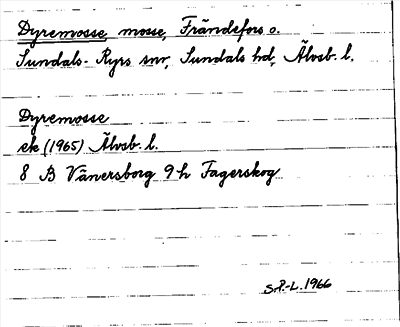 Dyremosse, mosse, Frändefors o.
Sundals-Ryrs snr, Sundals hd, Älvsb. l.
Dyremosse
ek (1965) Älvsb. l.
8 B Vänersborg 9 h Fagerskog
S.P.-L. 1966